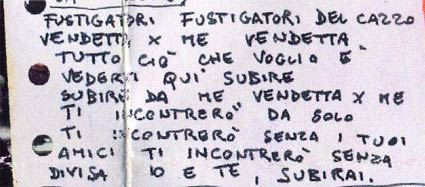 FUSTIGATORI FUSTIGATORI DEL CAZZO
VENDETTA X ME VENDETTA
TUTTO CIÒ CHE VOGLIO È
VEDERTI QUI SUBIRE
SUBIRE DA ME VENDETTA X ME
TI INCONTRERÒ DA SOLO
TI INCONTRERÒ SENZA I TUOI
AMICI TI INCONTRERÒ SENZA
DIVISA IO E TE, SUBIRAI.